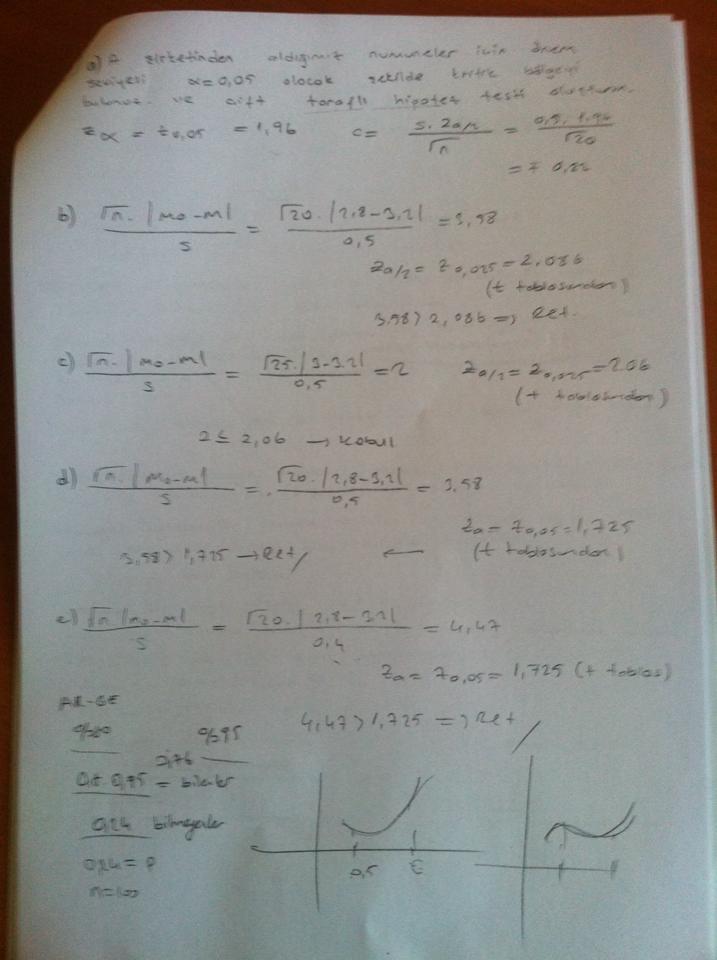 a) A şirketinden aldığımız numuneler için önem
seviyesi α=0,05 olacak şekilde kritik bölgeyi
bulunuz. ve çift taraflı hipotez testi oluşturun.
zα = z0,05 = 1,96 c= s.za/2 / √n = 0,5.1,96 / √20
= ∓ 0,22
b) √n.|m0-m| / s = √20.|2,8-3,2| / 0,5 = 3,58
za/2 = z0,025 = 2,086
(t tablosundan)
3,58 > 2,086 => Ret.
c) √n.|m0-m| / s = √25.|3-3.2| / 0,5 = 2 za/2 = z0,025 = 2.06
(t tablosundan)
2 ≤ 2,06 → Kabul
d) √n.|m0-m| / s = √20.|2,8-3,2| / 0,5 = 3,58
za = z0,05 = 1,725
3,58 > 1,725 → Ret ← (t tablosundan)
e) √n |m0-m| / s = √20.|2,8-3,2| / 0,4 = 4,47
za = z0,05 = 1,725 (t tablos)
AR-GE
4,47 > 1,725 => Ret
%80 %95
0,76
= bilenler
0,24 bilmeyenler
0,24 = p
n=100
0,5